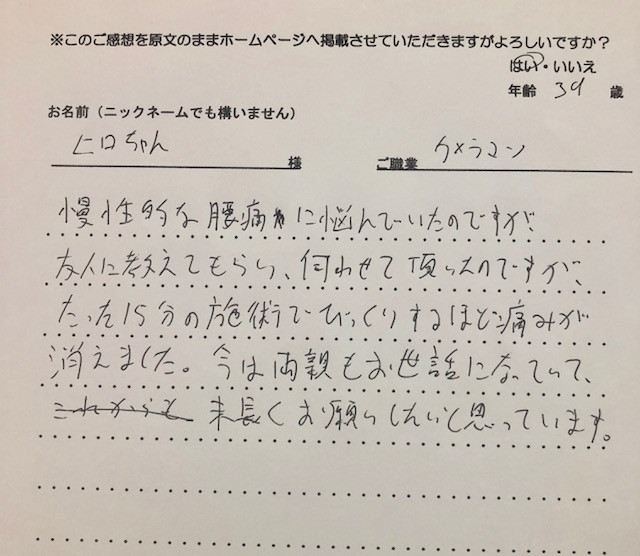 ※このご感想を原文のままホームページへ掲載させていただきますがよろしいですか？
はい・いいえ
年齢 39 歳
お名前（ニックネームでも構いません）
ヒロちゃん 様 ご職業 カメラマン
慢性的な腰痛に悩んでいたのですが
友人に教えてもらい、伺わせて頂いたのですが、
たった15分の施術でびっくりするほど痛みが
消えました。今は両親もお世話になっていて、
これからも 末長くお願いしたいと思っています。